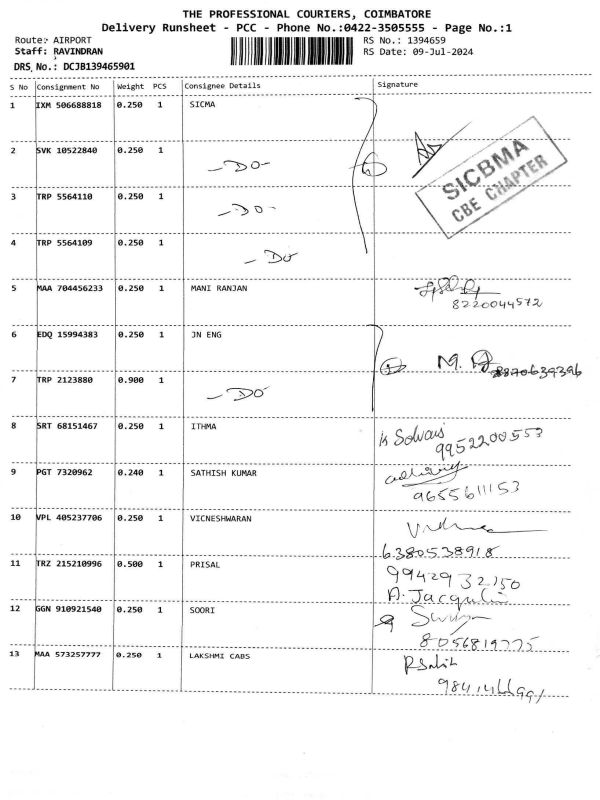 THE PROFESSIONAL COURIERS, COIMBATORE
Delivery Runsheet - PCC - Phone No.:0422-3505555 - Page No.:1
Route: AIRPORT
RS No.: 1394659
Staff: RAVINDRAN
RS Date: 09-Jul-2024
DRS No.: DCJB139465901
S No Consignment No Weight PCS Consignee Details Signature
1 IXM 506688818 0.250 1 SICMA
SICBMA
CBE CHAPTER
2 SVK 10522840 0.250 1
- DO -
3 TRP 5564110 0.250 1
- DO -
4 TRP 5564109 0.250 1
- DO
5 MAA 704456233 0.250 1 MANI RANJAN
8220044572
6 EDQ 15994383 0.250 1 JN ENG
M.
8870639396
7 TRP 2123880 0.900 1
- DO
8 SRT 68151467 0.250 1 ITHMA
9952200553
9 PGT 7320962 0.240 1 SATHISH KUMAR
9655611153
10 VPL 405237706 0.250 1 VICNESHWARAN
6380538918
11 TRZ 215210996 0.500 1 PRISAL
9942932150
A. Jacqulin
12 GGN 910921540 0.250 1 SOORI
8056819775
13 MAA 573257777 0.250 1 LAKSHMI CABS